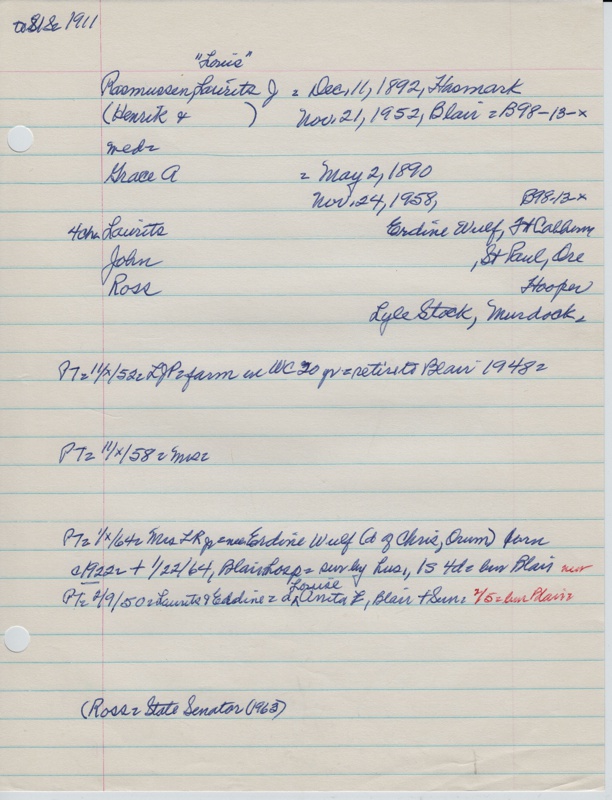 to S/Se 1911
"Louis"
Rasmussen, Laurits J = Dec, 11, 1892, Hasmark
(Henrik & ) Nov. 21, 1952, Blair = B98-13-x
med=
Grace A = May 2, 1890
Nov. 24, 1958, B98-13-x
4ch= Laurits Erdine Wulf, Ft Calhoun
John , St Paul, Ore
Ross Hooper
Lyle Stock, Murdock=
PT= 11/x/52= LJR= farm in WC 20 yr = retire to Blair 1948=
PT= 11/x/58 = Mrs=
PT= 1/x/64= Mrs LR jr = nee Erdine Wulf (d of Chris, Orum) born
c1922= + 1/22/64, Blair Hosp = surv by hus, 1s 4d = bur Blair
Louise
PT= 2/9/50 = Laurits & Erdine = d Anita E, Blair + Sun= 2/5 = bur Blair=
(Ross = State Senator (1963)